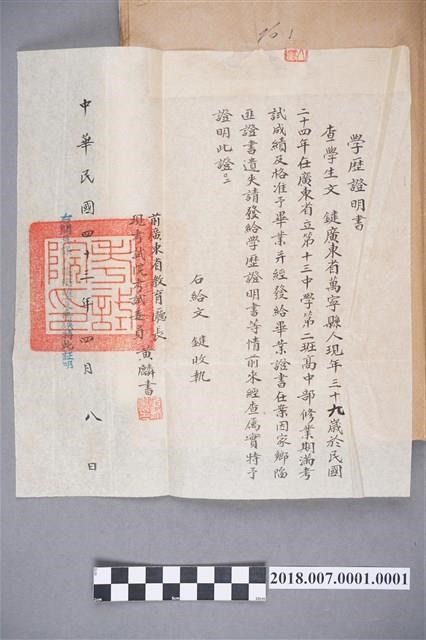 學歷證明書
查學生文　鍵廣東省萬寧縣人現年三十九歲於民國
二十四年在廣東省立第十三中學第二班高中部修業期滿考
試成績及格准予畢業并經發給畢業證書在案因家鄉陷
匪證書遺失請發給學歷證明書等情前來經查屬實特予
證明此證
右給文　鍵收執
前廣東省教育廳長
現考試院考試委員　黃麟書
中華民國四十三年四月八日
考試院印
2018.007.0001.0001